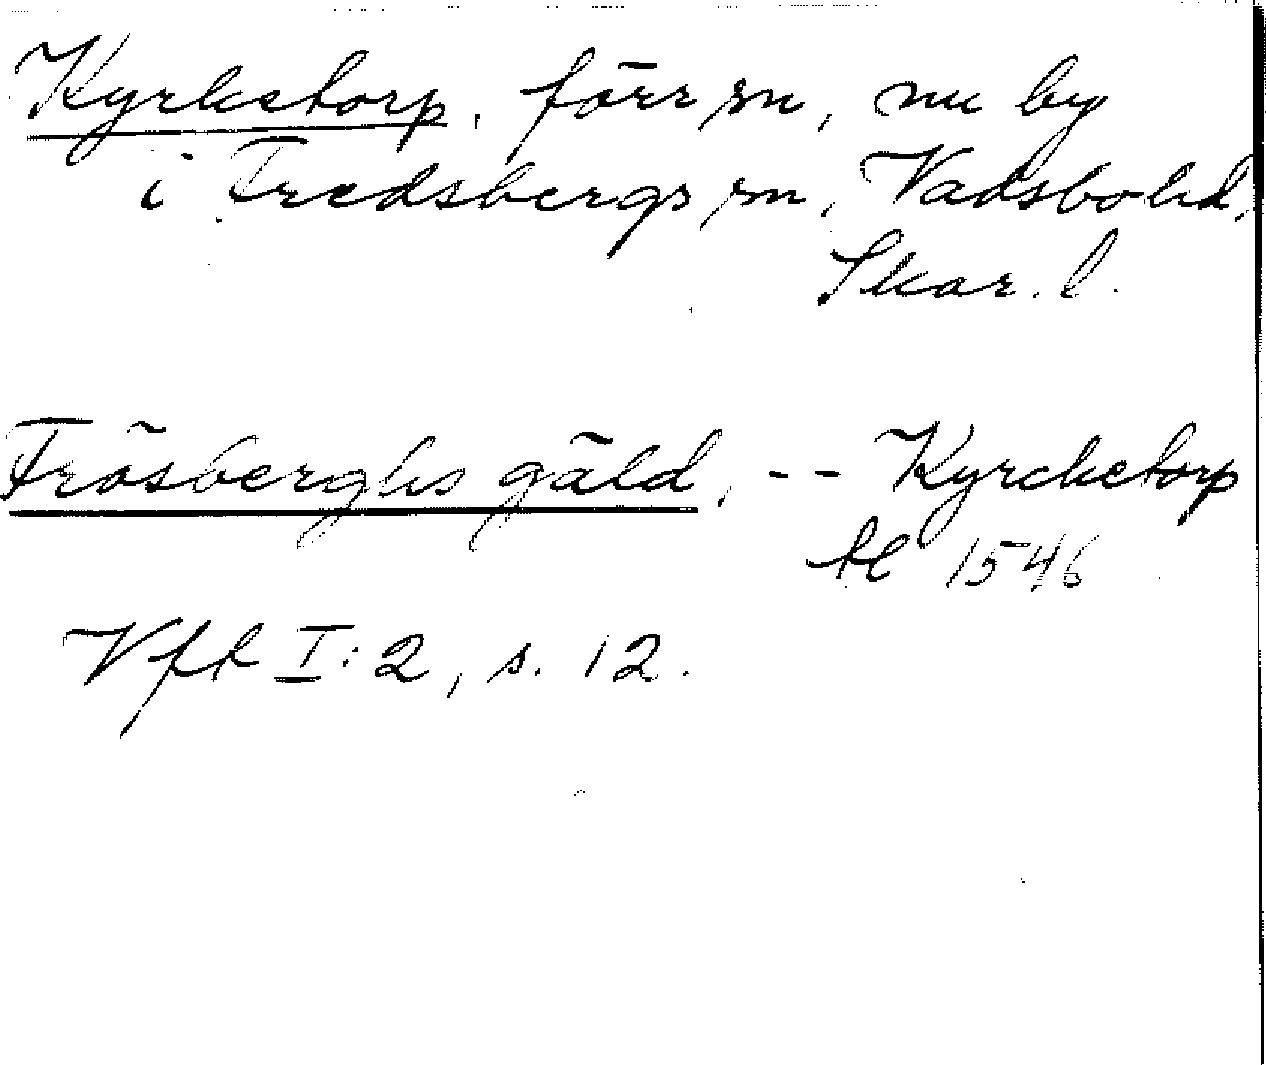 Kyrketorp, förr sn, nu by
i Fredsbergs sn, Vadsbo hd,
Skar. l.
Frösberghs gäld, -- Kyrcketorp
kl 1546
Vfk I:2, s. 12.